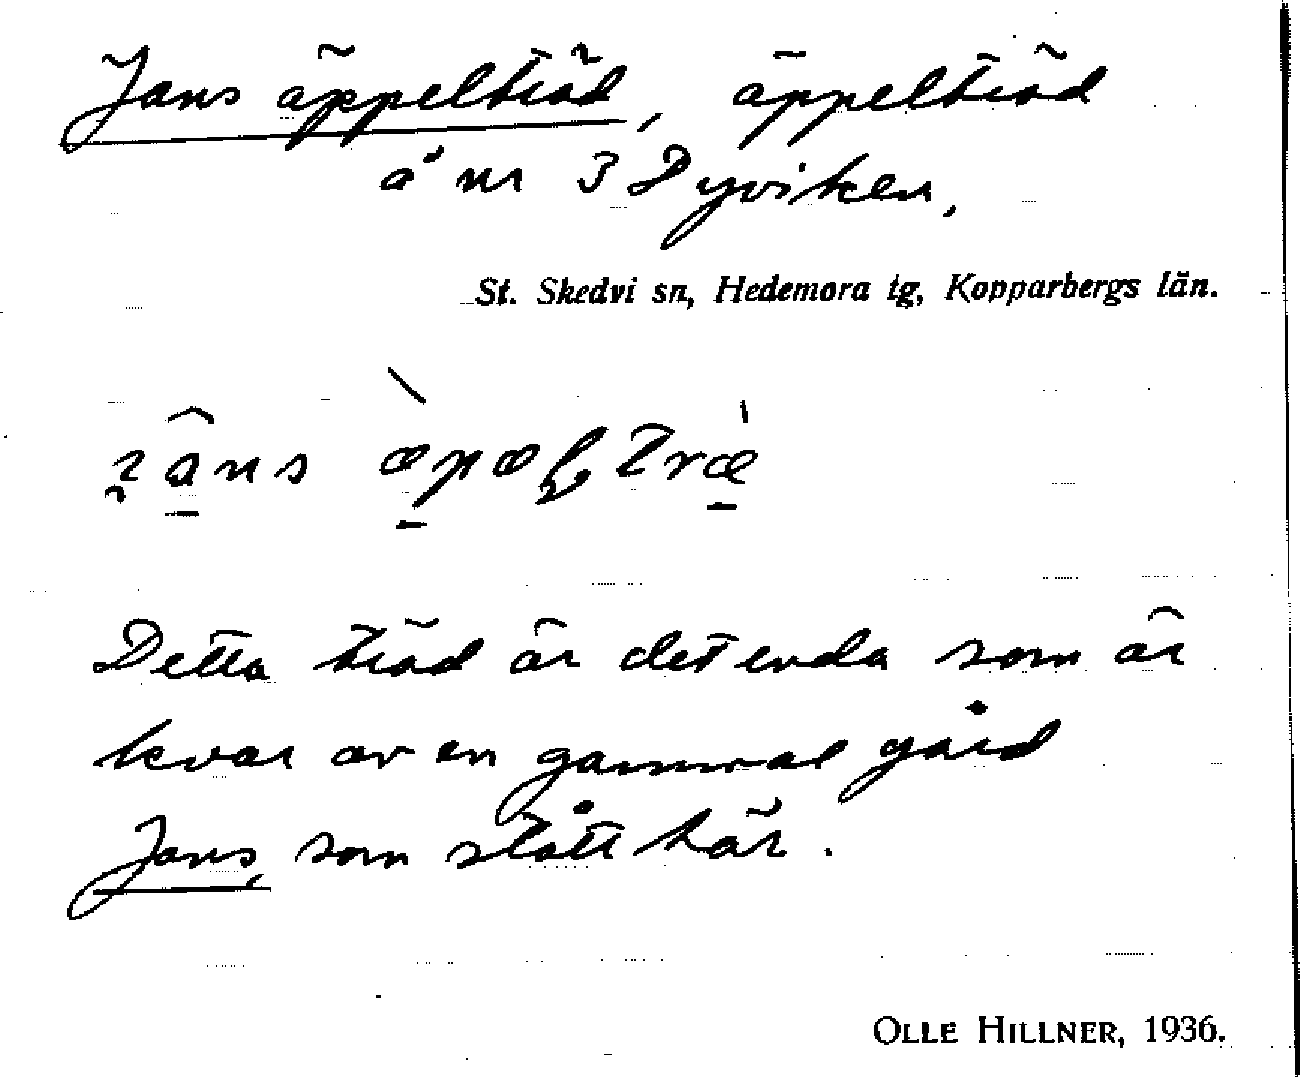 Jans äppelträd, äppelträd
å nr 3 Dyviken,
St. Skedvi sn, Hedemora tg, Kopparbergs län.
Detta träd är det enda som är
kvar av en gammal gård
Jans, som stått här.
OLLE HILLNER, 1936.